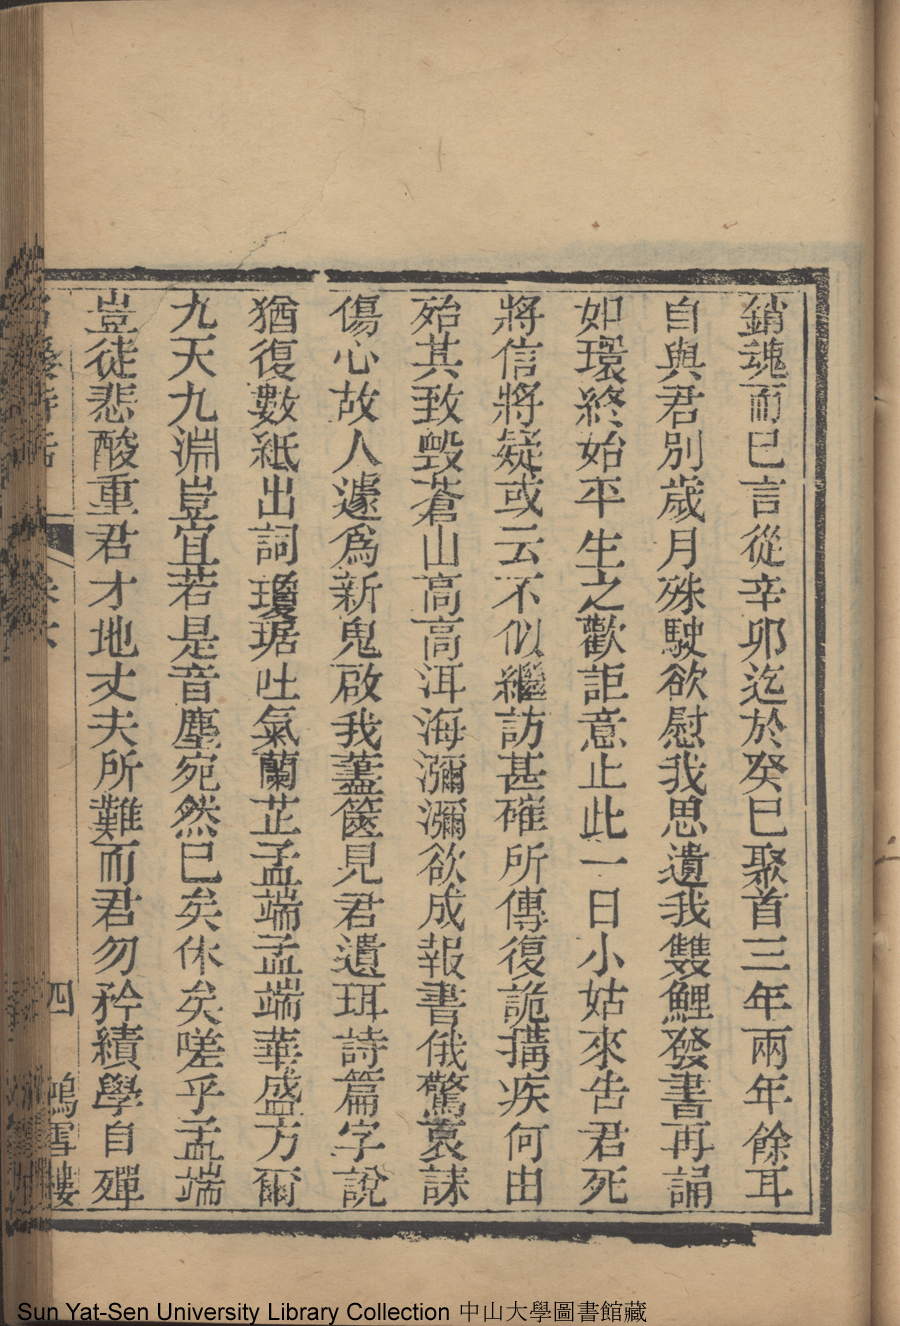 銷魂而巳言從辛卯迄於癸巳聚首三年兩年餘耳
自與君別歲月殊駛欲慰我思遺我雙鯉發書再誦
如環終始平生之歡詎意止此一日小姑來告君死
將信將疑或云不似繼訪甚確所傳復詭搆疾何由
殆其致毀蒼山高高洱海瀰瀰欲成報書俄驚哀誄
傷心故人遽爲新鬼啟我藎篋見君遺珥詩篇字說
猶復數紙出詞瓊琚吐氣蘭芷孟端孟端華盛方爾
九天九淵豈宜若是音塵宛然巳矣休矣嗟乎孟端
豈徒悲酸重君才地丈夫所難而君勿矜績學自殫
詩話 卷六 四 鴻雪樓
Sun Yat-Sen University Library Collection 中山大學圖書館藏